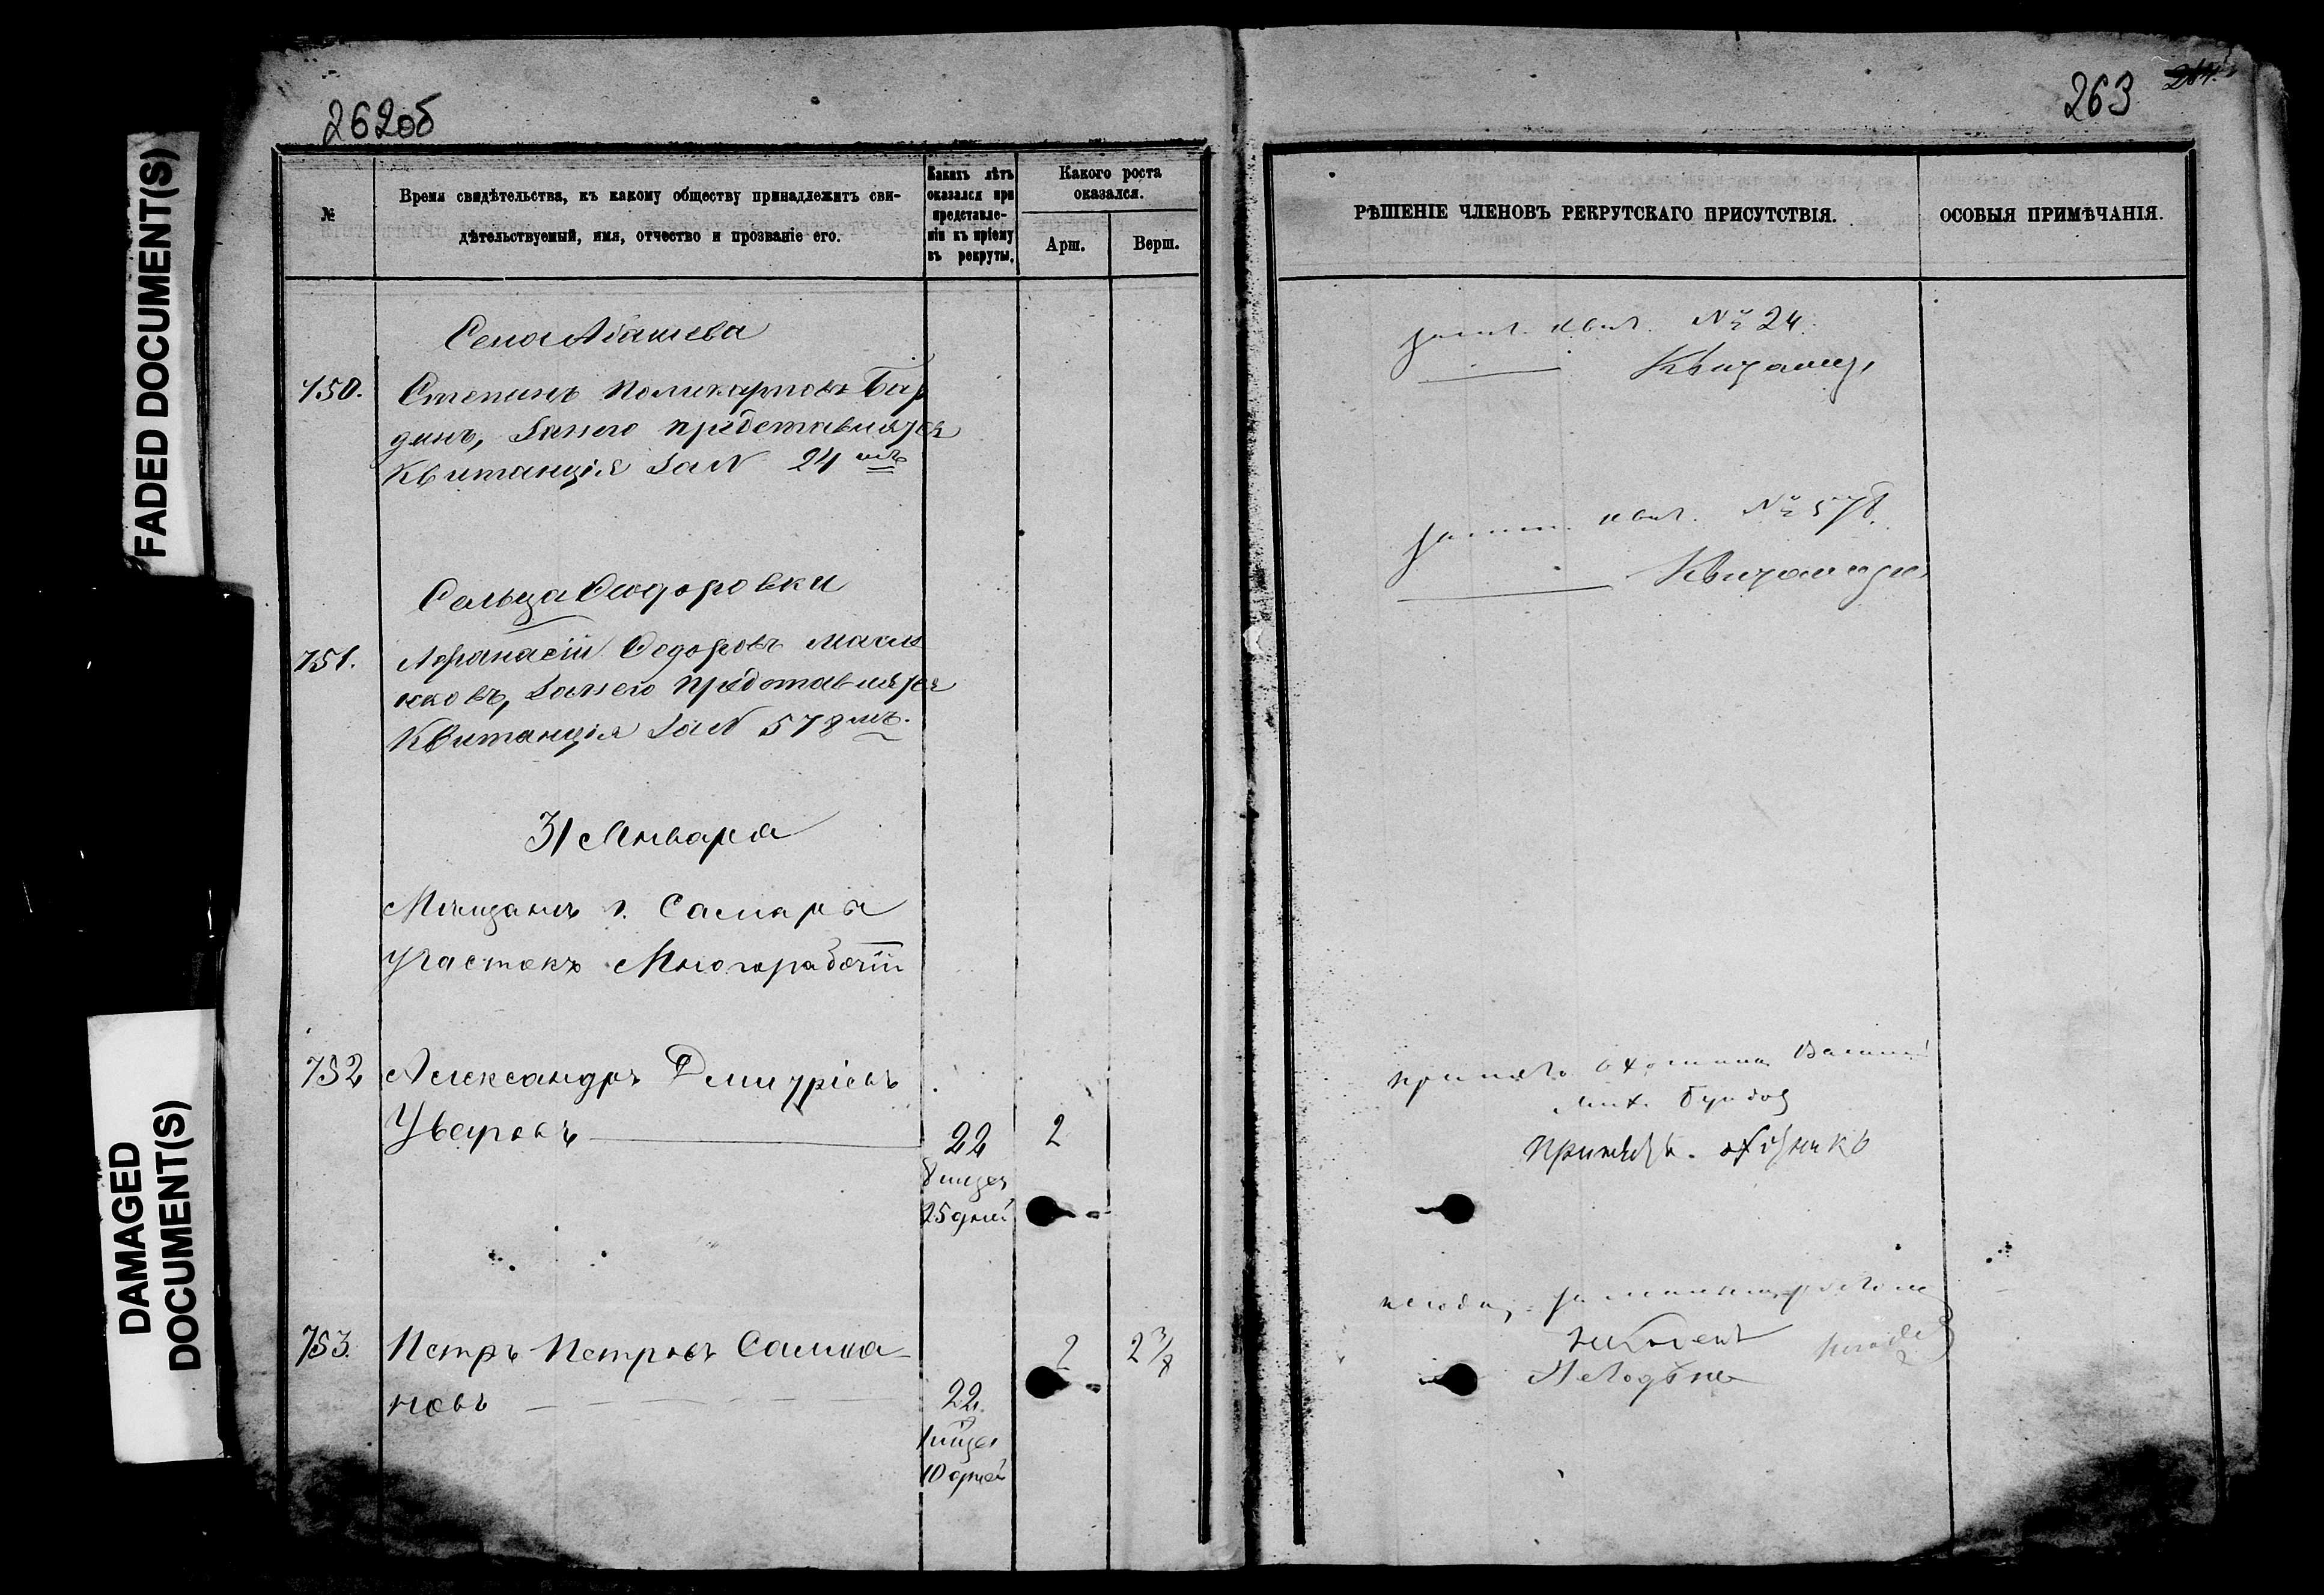 FADED DOCUMENT(S)
DAMAGED
DOCUMENT(S)
262об
№
Время свидѣтельства, къ какому обществу принадлежитъ сви-
дѣтельствуемый, имя, отчество и прозваніе его.
Какихъ лѣтъ
оказался при
представле-
ніи къ пріему
въ рекруты.
Какого роста
оказался.
Арш.
Верш.
Села Абашева
750.
Степанъ Поликарповъ Бар
динъ, за него представляется
Квитанція за N 24мъ
Сельца Федоровки
751.
Афанасій Федоровъ Масле
нковъ, за него представляется
Квитанція за N 578мъ.
31 Января
Мѣщанъ г. Самары
Участокъ Многорабочій
752
Александръ Дмитріевъ
Уваровъ
22
8 мцев
25 дней
2
753.
Петръ Петровъ Салма-
новъ
22.
1 мцъ
10 дней
2
2 3/8
263
РѢШЕНІЕ ЧЛЕНОВЪ РЕКРУТСКАГО ПРИСУТСТВІЯ.
ОСОБЫЯ ПРИМѢЧАНІЯ.
зачт. квит. № 24.
Квитанц.
зачт. квит. № 578.
Квитанція
принятъ охотникъ
Мих.
Принятъ. охотникъ
негод.
Негоденъ